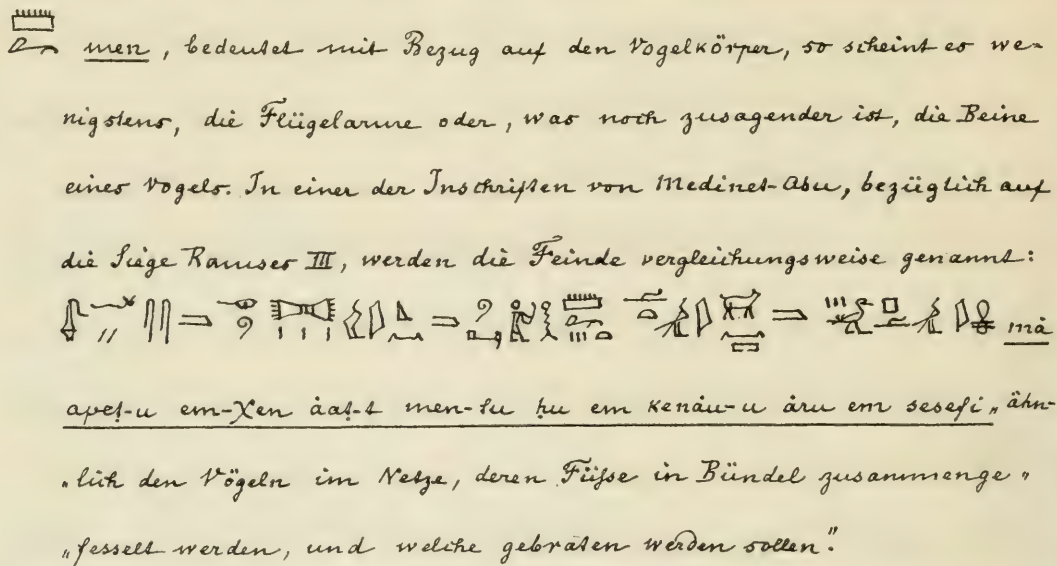 men, bedeutet mit Bezug auf den Vogelkörper, so scheint es we-
nigstens, die Flügelarme oder, was noch zusagender ist, die Beine
eines Vogels. In einer der Inschriften von Medinet-Abu, bezüglich auf
die Siege Ramses III, werden die Feinde vergleichungsweise genannt:
må
apeṭ-u em-χen åaṭ-t men-su ḥu em kenåu-u åru em sesefi „ähn-
„lich den Vögeln im Netze, deren Füße in Bündel zusammenge„
„fesselt werden, und welche gebraten werden sollen“.